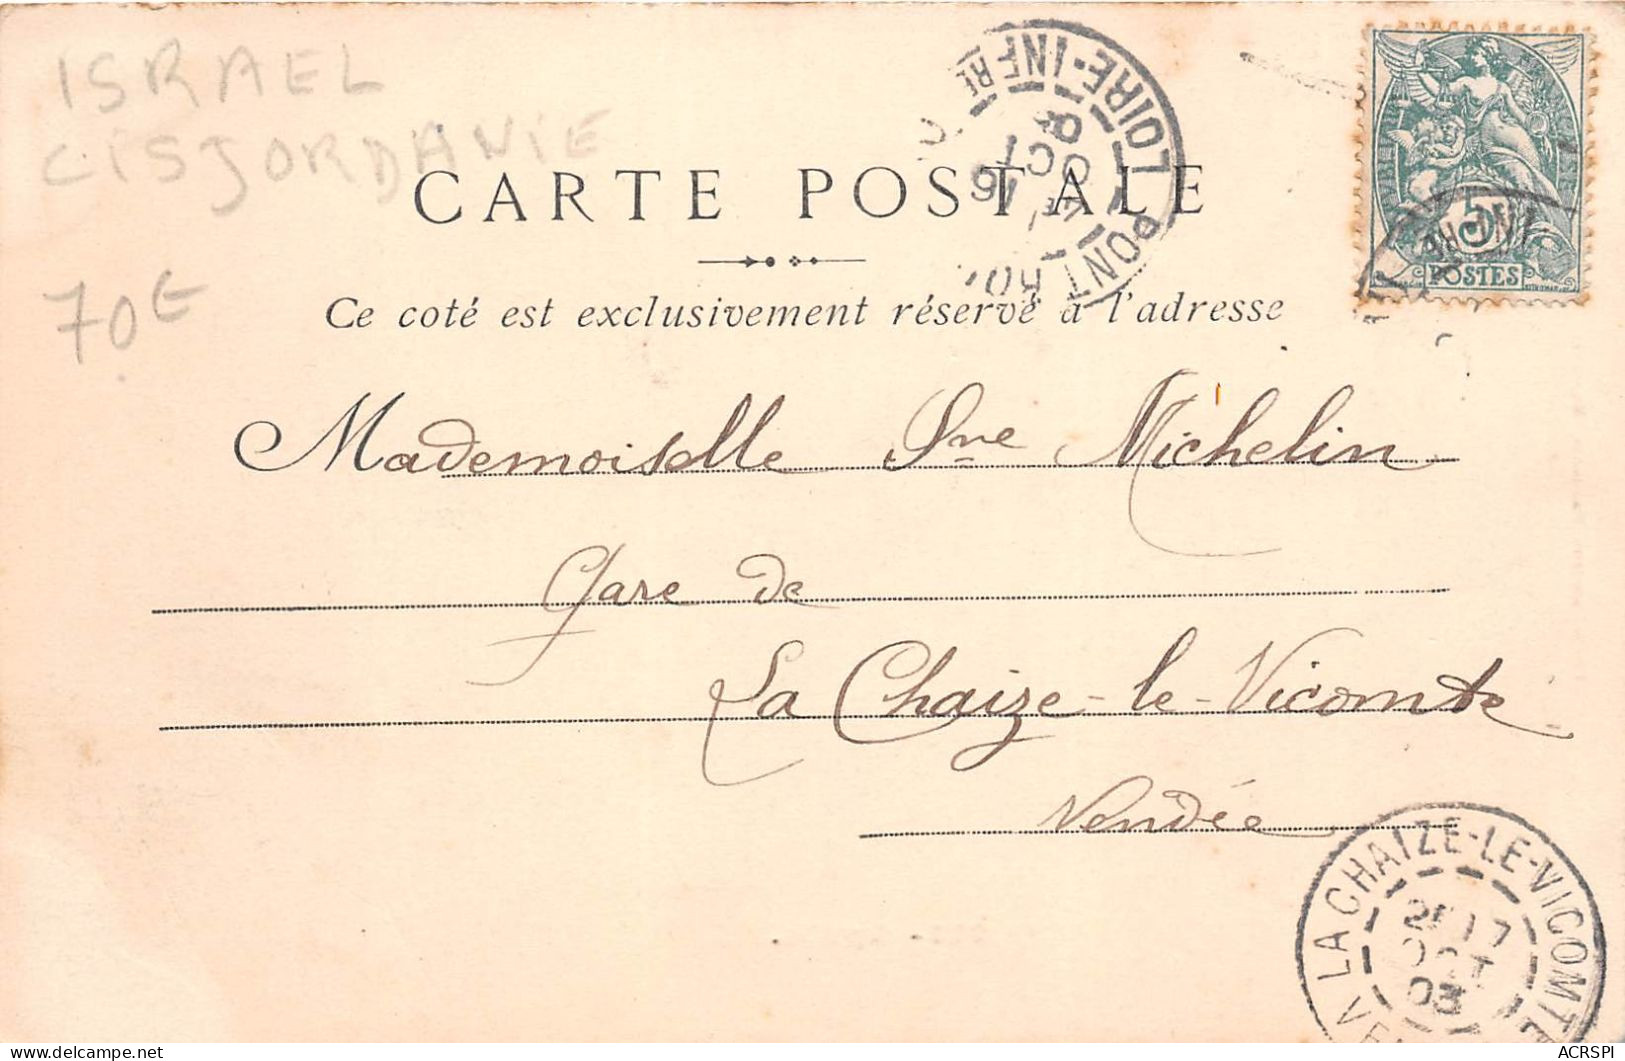 ISRAEL
CISJORDANIE
70€
CARTE POSTALE
Ce coté est exclusivement réservé à l'adresse
5c
POSTES
PONT
LOIRE-INFRE
16
OCT
Mademoiselle Sne Michelin
Gare de
La Chaize-le-Vicomte
Vendée
LA CHAIZE-LE-VICOMTE
2E 17
OCT
03
ACRSPI